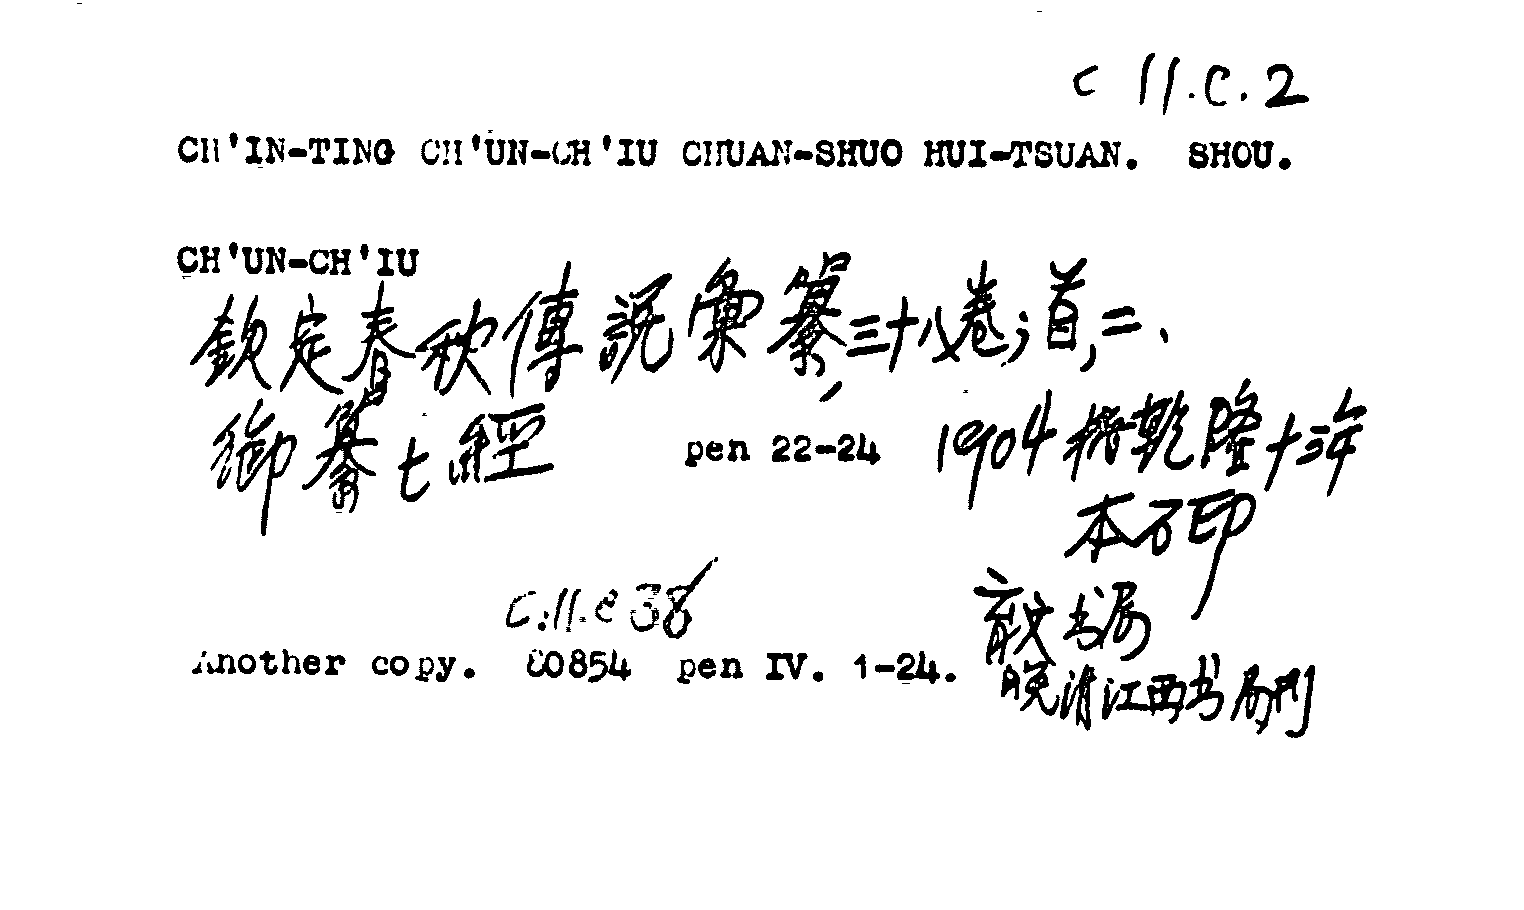 C 11.C.2
CH'IN-TING CH'UN-CH'IU CHUAN-SHUO HUI-TSUAN. SHOU.
CH'UN-CH'IU
欽定春秋傳說彙纂,三十八卷;首,二、
御纂七經 pen 22-24 1904 據乾隆十三年
本石印
C.11.C 38
書局
Another copy. 80854 pen IV. 1-24.
晚清江西书局刊